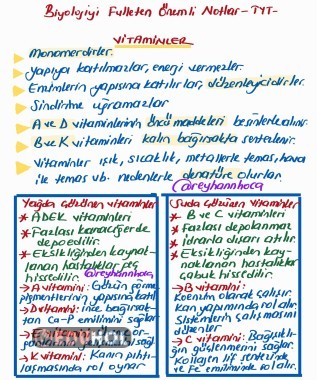 Biyolojiyi Fulleten Önemli Notlar-TYT-
VİTAMİNLER
Monomerdirler.
Yapıya katılmazlar, enerji vermezler.
Enzimlerin yapısına katılırlar, düzenleyicidirler.
Sindirime uğramazlar
A ve D vitaminlerinin öncü maddeleri besinlerle alınır.
B ve K vitaminleri kalın bağırsakta sentezlenir.
Vitaminler ışık, sıcaklık, metallerle temas, hava
ile temas vb. nedenlerle denatüre olurlar.
@reyhannhoca
Yağda Çözünen Vitaminler
* ADEK vitaminleri
* Fazlası karaciğerde
depo edilir.
* Eksikliğinden kaynak-
lanan hastalıklar geç
hissedilir. @reyhannhoca
→ A vitamini: Gözün görme
pigmentlerinin yapısına katıl
→ D vitamini: İnce bağırsak-
tan Ca-P emilimini sağlar
→ K vitamini: Kanın pıhtı-
laşmasında rol oynar
Suda Çözünen Vitaminler
* B ve C vitaminleri
* Fazlası depolanmaz
İdrarla dışarı atılır.
* Eksikliğinden kay-
naklanan hastalıklar
çabuk hissedilir.
→ B vitamini:
Koenzim olarak çalışır.
Kan yapımında rol alır.
Sistemlerin çalışmasını
düzenler
→ C vitamini: Bağışıklı-
ğın güçlenmesini sağlar.
Kollajen lif sentezinde
ve Fe emiliminde rol alır.